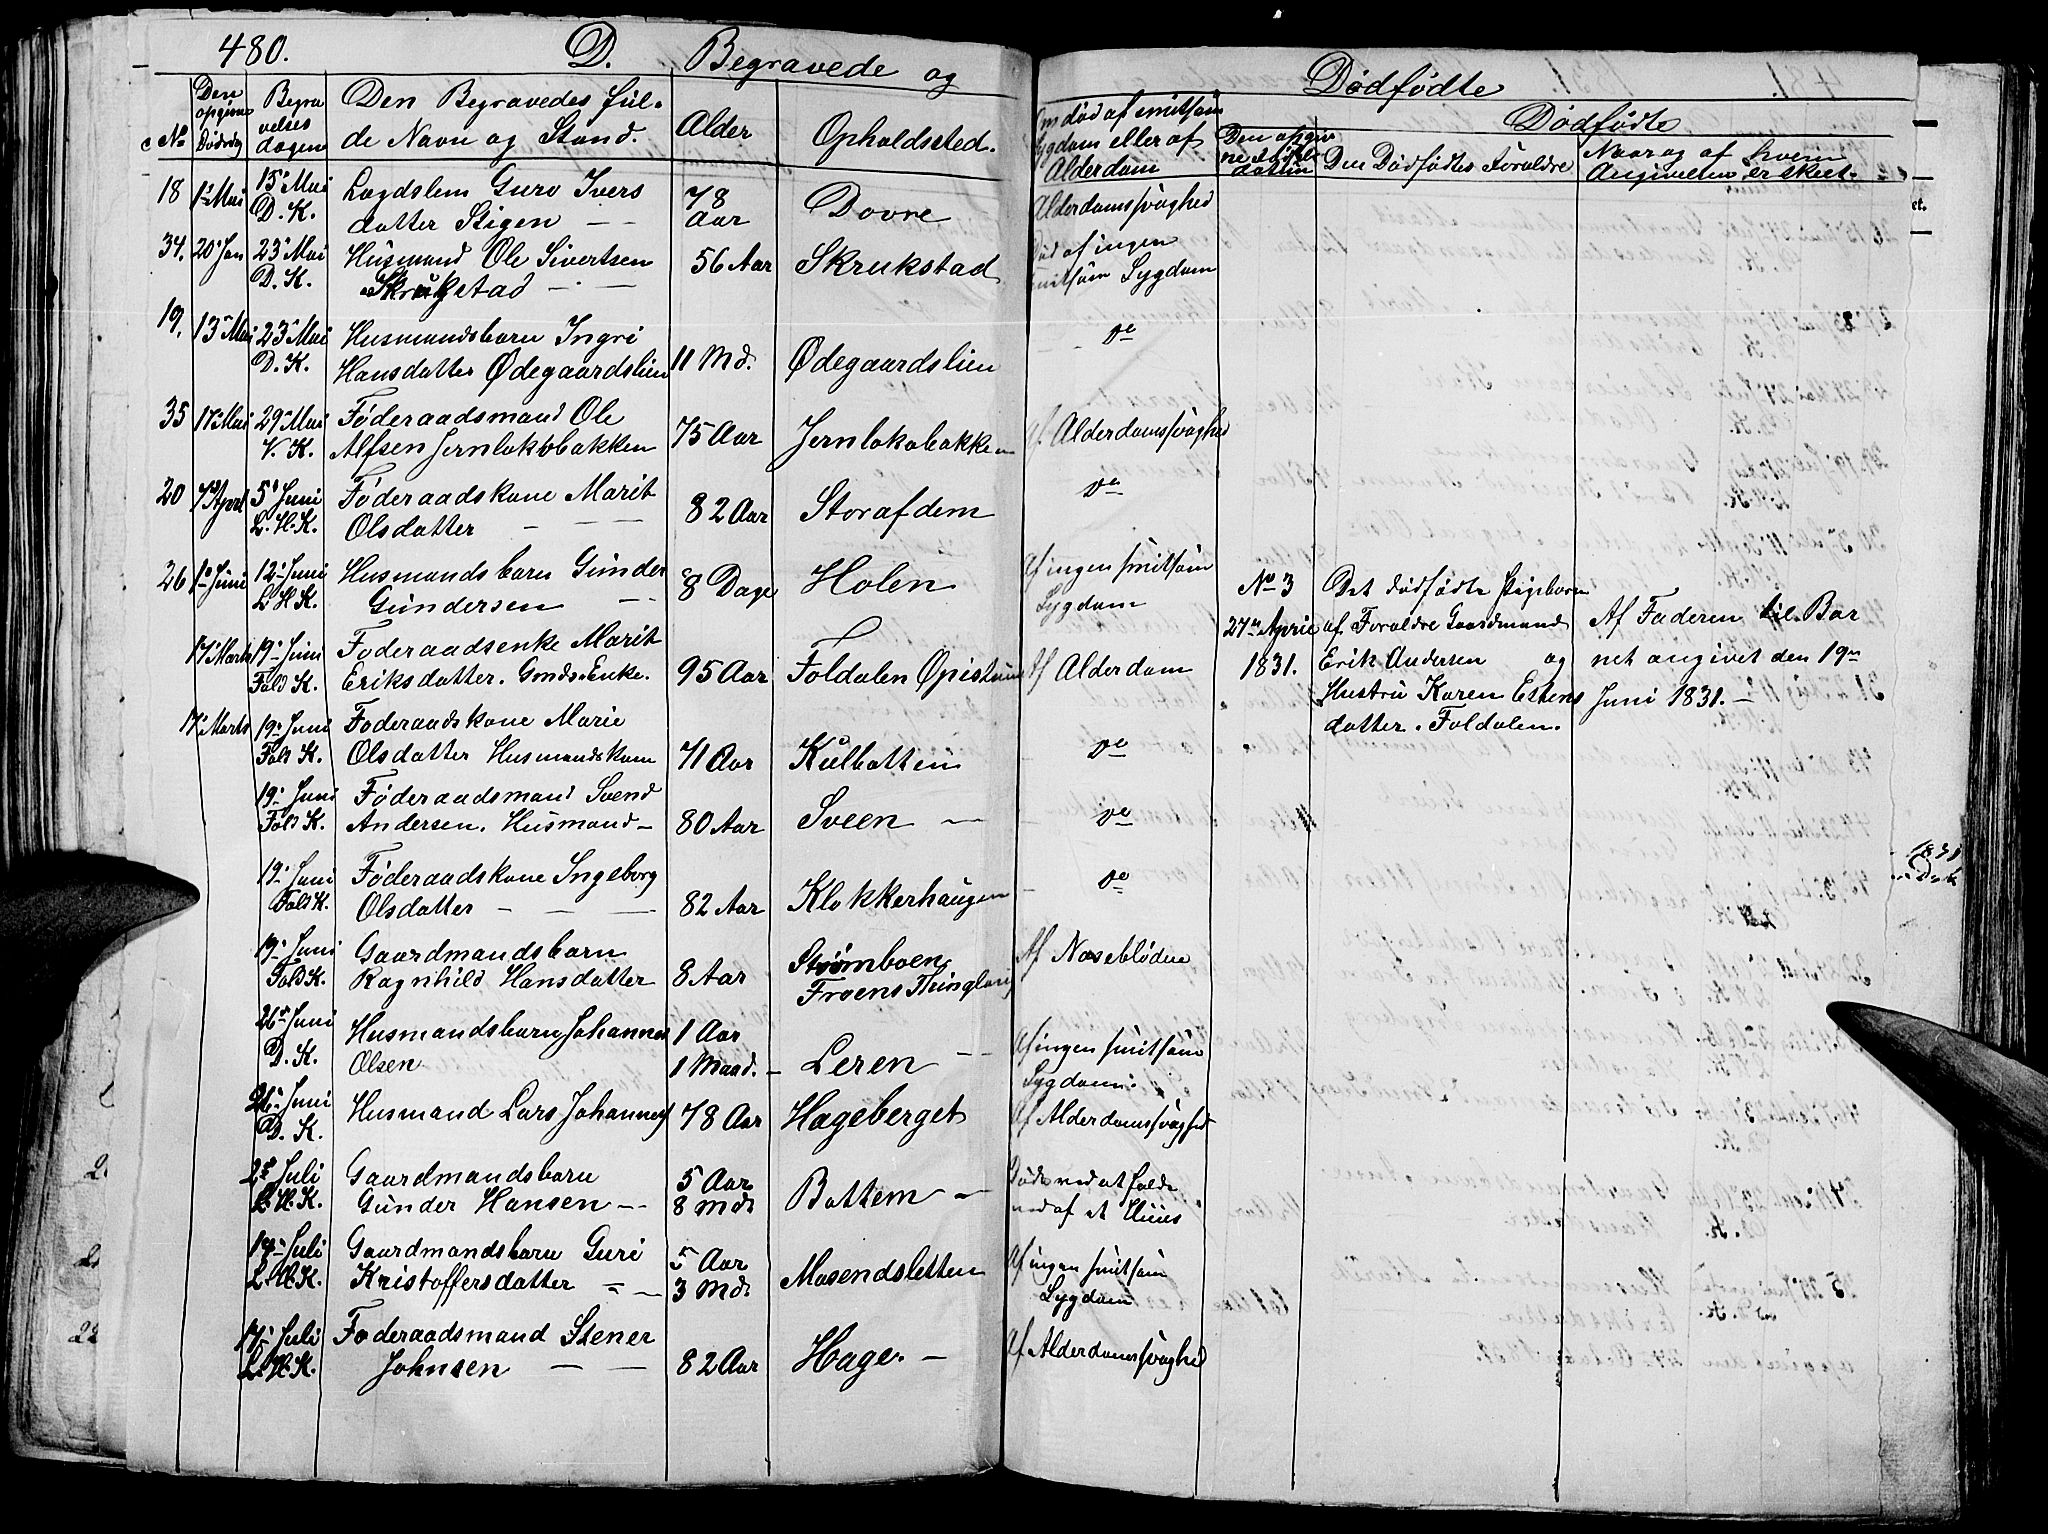 480. D. Begravede og Dødfødte
No Den opgivne Dødsdag Begravelses dagen Den Begravedes fulde Navn og Stand. Alder Opholdssted. Om død af smitsom Sygdom eller af Alderdom
Dødfødte
Den Dødfødtes Forældre Naar og af hvem Angivelsen er skeet.
18 1 Mai 15 Mai Lægdslem Guro Ivers 78
D. K. datter Stigen — — Aar Dovre Alderdomssvaghed
34. 20 Jan 23 Mai Husmand Ole Sivertsen 56 Aar Skrukstad Død af ingen
D. K. Skrukstad — smitsom Sygdom
19. 13 Mai 23 Mai Husmandsbarn Ingri
D. K. Hansdatter Ødegaardslien 11 Md. Ødegaardslien do
35 17 Mai 29 Mai Føderaadsmand Ole
V. K. Alfsen Jernlokobakken 75 Aar Jernlokobakken af Alderdomssvaghed
20 7 April 5 Juni Føderaadskone Marit
L. H. K. Olsdatter — — — 82 Aar Storafdem do
26 1 Juni 12 Juni Husmandsbarn Gunder 8 Dage Holen Af ingen smitsom
L H K. Gundersen — Sygdom
17 Marts 19 Juni Foderaadsenke Marit
Fold K. Eriksdatter. Gmds. Enke. 95 Aar Foldalen Af Alderdom
17 Marts 19 Juni Foderaadskone Marie
Fold K. Olsdatter Husmandskone 71 Aar Kulbotten do
19 Juni Føderaadsmand Svend
Fold K. Andersen. Husmand — 80 Aar Sveen — do
19 Juni Føderaadskone Ingeborg
Fold K. Olsdatter — — — 82 Aar Klokkerhaugen do
19 Juni Gaardmandsbarn Strømboen
Fold K. Ragnhild Hansdatter 8 Aar Froens Thinglaug Af Neseblöden
26 Juni Husmandsbarn Johannes 1 Aar
D. K. Olsen 1 Maad. — Leren — Af ingen smitsom
Sygdom
26 Juni Husmand Lars Johannes 78 Aar Hageberget Af Alderdomssvaghed
D. K.
2 Juli Gaardmandsbarn 5 Aar Døde ved at falde
L. H. K. Gunder Hansen — 8 Mdr Bottem — ned af et Huus
17 Juli Gaardmandsbarn Guri 5 Aar Af ingen smitsom
L. H. K. Kristoffersdatter — 3 Mdr Mosendsletten Sygdom
17 Juli Foderaadsmand Stener
L. H. K. Johnsen — — 82 Aar Hage. — Af Alderdomssvaghed
No 3 Det dødfødte Pigebarn
27 April af Foraldre Gaardmand Af Faderen til Bar
1831. Erik Andersen og net angivet den 19
Hustru Karen Estens Juni 1831. —
datter. Foldalen.